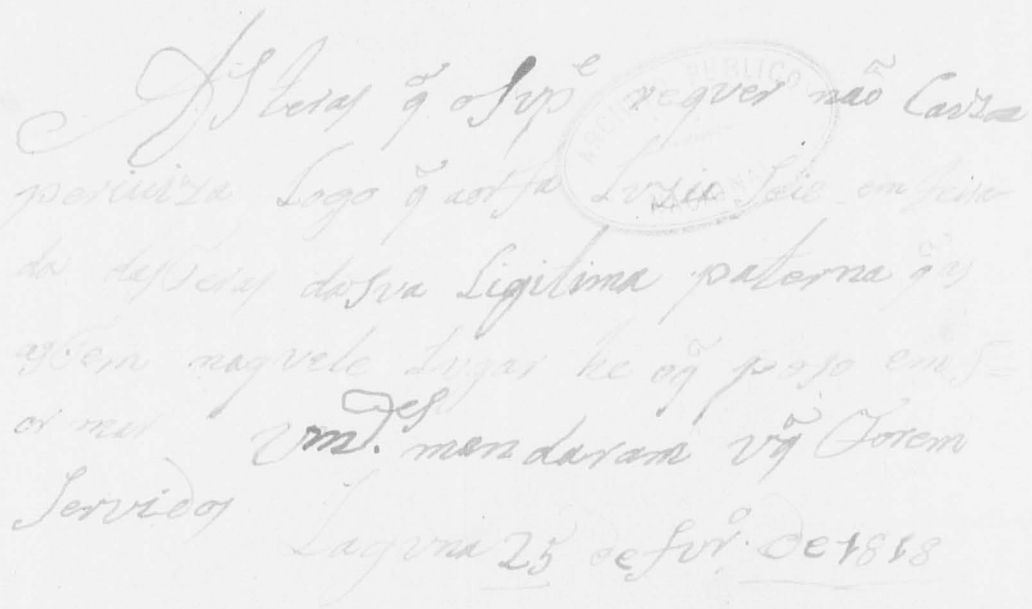 As teras q̃ o Sup.e requer não Cauza
periuiza Logo q̃ a orfa Luzia
da das teras da sua Ligitima paterna
naquele Lugar he oq̃ poso em
or mar Vm.des mandaram oq̃ forem
Servidos
Laguna 25 de fvr.o de 1818
ARCHIVO PUBLICO